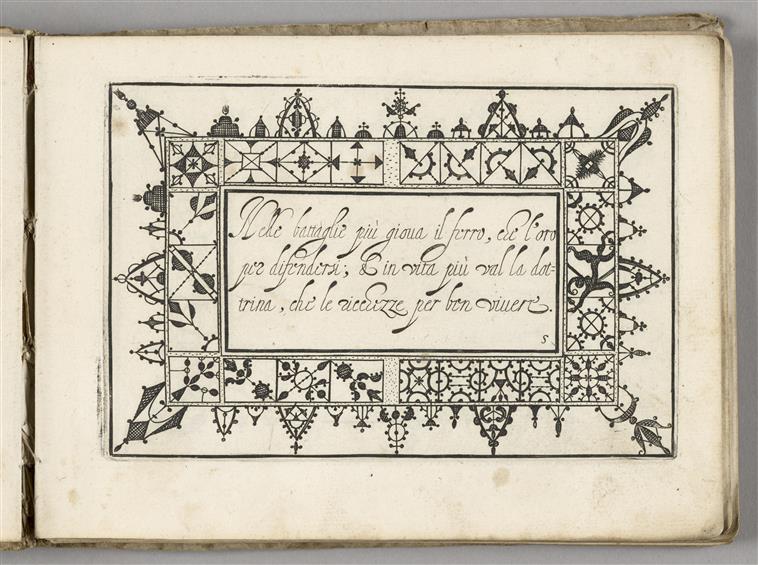 Nelle battaglie più gioua il ferro, che l'oro
per difendersi; & in vita più val la dot-
trina, che le ricchezze per ben viuere.
s